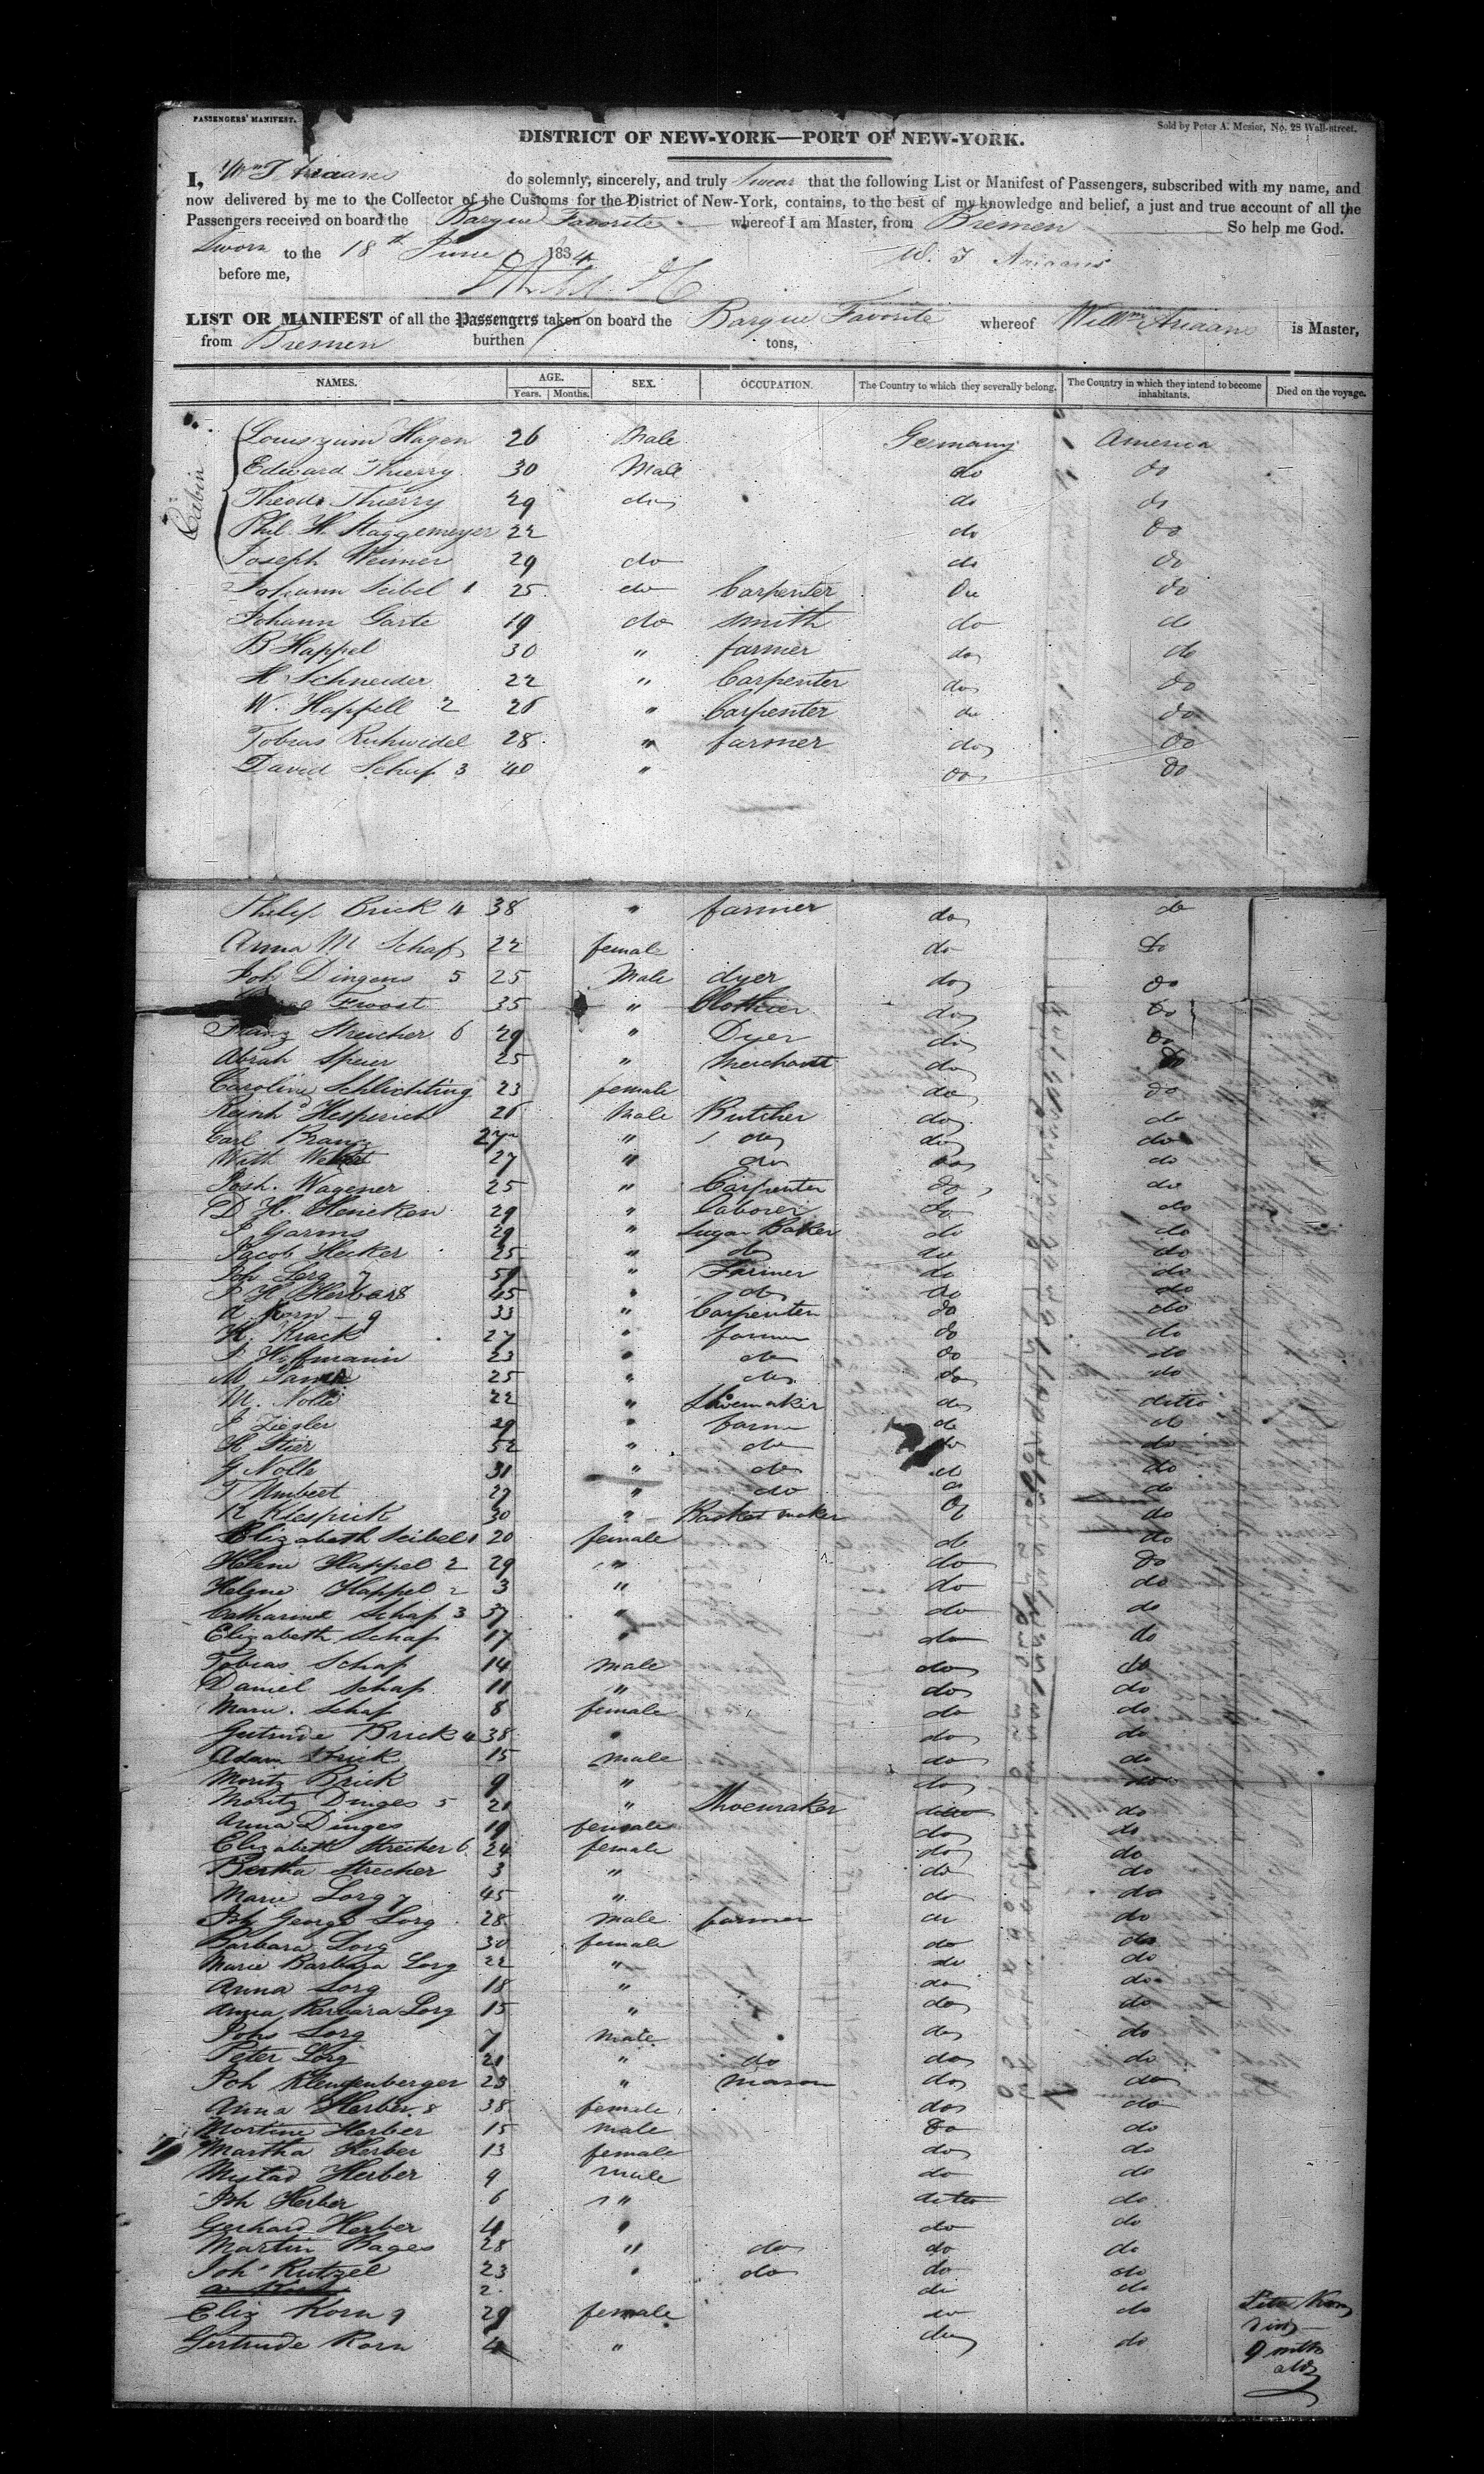 PASSENGERS' MANIFEST.
Sold by Peter A. Mesier, No. 28 Wall-street.
DISTRICT OF NEW-YORK—PORT OF NEW-YORK.
I, Wm T Ariaans do solemnly, sincerely, and truly swear that the following List or Manifest of Passengers, subscribed with my name, and
now delivered by me to the Collector of the Customs for the District of New-York, contains, to the best of my knowledge and belief, a just and true account of all the
Passengers received on board the Barque Favorite whereof I am Master, from Bremen So help me God.
Sworn to the 18th June 1834 W. T Ariaans
before me,
LIST OR MANIFEST of all the Passengers taken on board the Barque Favorite whereof Willm Ariaans is Master,
from Bremen burthen tons,
NAMES. AGE. SEX. OCCUPATION. The Country to which they severally belong. The Country in which they intend to become inhabitants. Died on the voyage.
Years. Months.
Cabin
Louis zum Hagen 26 Male Germany America
Edward Thierry 30 Male do do
Theod. Thierry 29 do do do
Phil. H. Staggemeyer 22 do do
Joseph Weimer 29 do do do
Johann Seibel 1 25 do Carpenter do do
Johann Garte 19 do smith do do
B Happel 30 " farmer do do
H Schneider 22 " Carpenter do do
W. Happell 2 26 " Carpenter do do
Tobias Ruhwidel 28 " farmer do do
David Schaf 3 40 " do do
Philip Brick 4 38 " farmer do do
Anna M Schaf 22 female do do
Joh Dingens 5 25 Male dyer do do
Froost 35 " Clothier do do
Franz Streicher 6 29 " Dyer do do
Abrah Speier 25 " Merchant do do
Caroline Schlichting 23 female do do
Reinhd Hesperich 26 Male Butcher do do
Carl Branz 27 " do do do
Wilh 27 " do do do
Josh. Wagener 25 " Carpenter do do
D H. Hencken 29 " laborer do do
J Garms 29 " Sugar Baker do do
Jacob Hecker 25 " do do do
Joh Lorg 7 51 " Farmer do do
J H Herber 8 45 " do do do
A Korn 9 33 " Carpenter do do
H. Krack 27 " farmer do do
J Hoffmann 23 " do do do
M 25 " do do do
M. Nolte 22 " Shoemaker do ditto
J Ziegler 29 " farmer do do
H Stier 52 " do do do
G Nolte 31 " do do do
T Umbert 27 " do do do
R Klesprick 30 " Basket maker do do
Elizabeth Seibel 1 20 female do do
Helene Happel 2 29 " do do
Helene Happel 2 3 " do do
Catharine Schaf 3 37 " do do
Elizabeth Schaf 17 " do do
Tobias Schaf 14 male do do
Daniel Schaf 11 " do do
Marie. Schaf 8 female do do
Gertrude Brick 4 38 " do do
Adam Brick 15 male do do
Moritz Brick 9 " do do
Moritz Dinges 5 21 " Shoemaker ditto do
Anna Dinges 19 female do do
Elizabeth Strecher 6 24 female do do
Bertha Strecher 3 " do do
Marie Lorg 7 45 " do do
Joh George Lorg 28 male farmer do do
Barbara Lorg 30 female do do
Marie Barbara Lorg 22 " do do
Anna Lorg 18 " do do
Anna Barbara Lorg 15 " do do
Johs Lorg 7 male do do
Peter Lorg 21 " do do do
Joh Klengenberger 23 " mason do do
Anna Herber 8 38 female do do
Martine Herber 15 male do do
Martha Herber 13 female do do
Mystad Herber 9 male do do
Joh Herber 6 " ditto do
Gerhard Herber 4 " do do
Martin Bages 28 " do do do
Joh Rutzel 23 " do do do
2 do do
Eliz Korn 9 29 female do do
Gertrude Korn 4 " do do
9 mths
old